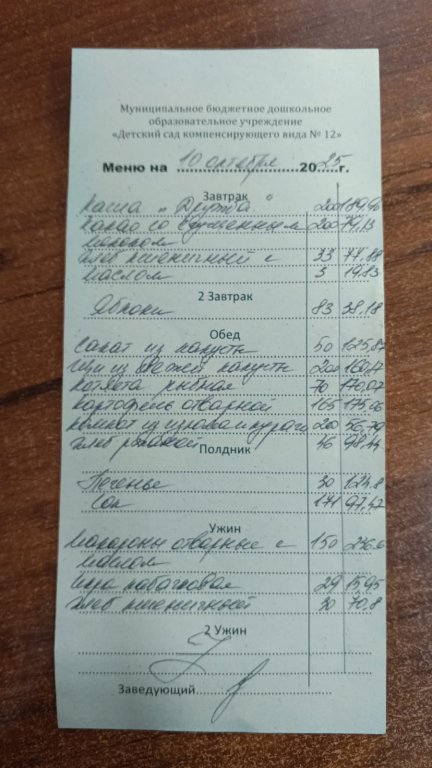 Муниципальное бюджетное дошкольное
образовательное учреждение
«Детский сад компенсирующего вида № 12»
Меню на 10 октября 2025 г.
Завтрак
Каша "Дружба" 200 189,96
Какао со сгущенным 200 79,13
молоком
Хлеб пшеничный с 33 77,88
маслом 3 19,83
2 Завтрак
Яблоки 83 38,18
Обед
Салат из капусты 50 125,87
Щи из свежей капусты 200 160,47
Котлета рыбная 70 170,07
Картофель отварной 165 175,06
Компот из изюма и кураги 200 56,79
Хлеб ржаной 46 98,44
Полдник
Печенье 30 124,8
Сок 171 97,47
Ужин
Макароны отварные с 150 236,0
маслом
Икра кабачковая 29 15,95
Хлеб пшеничный 30 70,8
2 Ужин
Заведующий